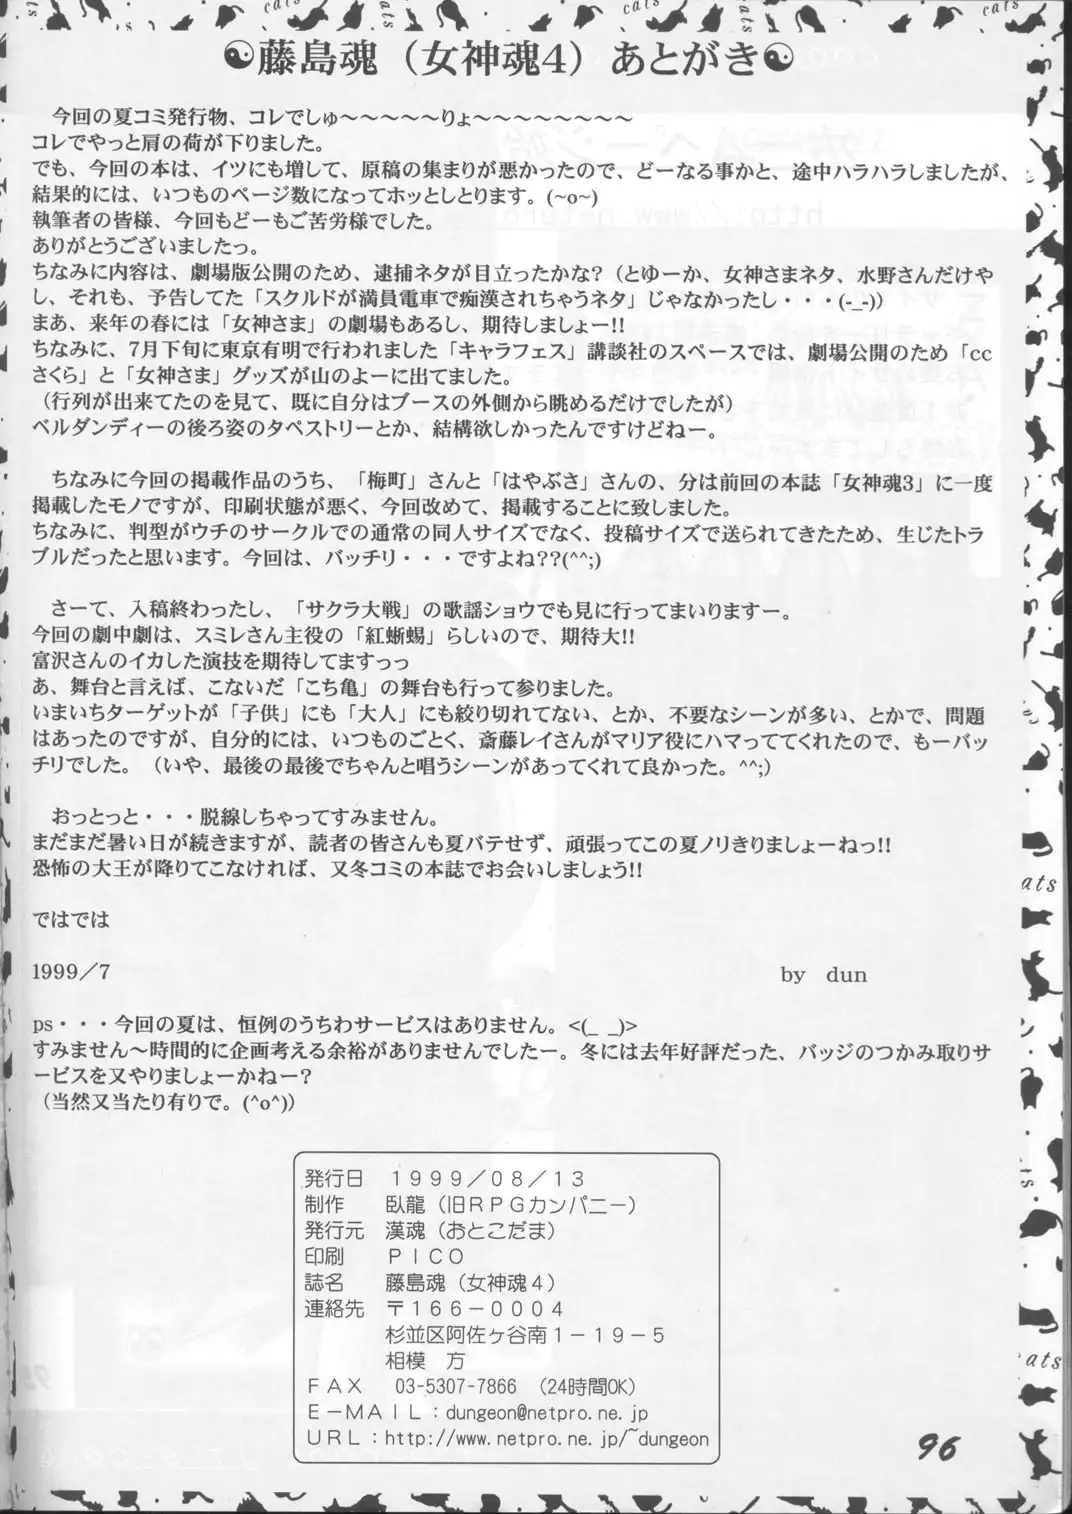 藤島魂（女神魂4）あとがき
今回の夏コミ発行物、コレでしゅ～～～～～りょ～～～～～～～～
コレでやっと肩の荷が下りました。
でも、今回の本は、イツにも増して、原稿の集まりが悪かったので、どーなる事かと、途中ハラハラしましたが、
結果的には、いつものページ数になってホッとしとります。(~o~)
執筆者の皆様、今回もどーもご苦労様でした。
ありがとうございましたっ。
ちなみに内容は、劇場版公開のため、逮捕ネタが目立ったかな？（とゆーか、女神さまネタ、水野さんだけや
し、それも、予告してた「スクルドが満員電車で痴漢されちゃうネタ」じゃなかったし・・・(-_-)）
まあ、来年の春には「女神さま」の劇場もあるし、期待しましょー!!
ちなみに、7月下旬に東京有明で行われました「キャラフェス」講談社のスペースでは、劇場公開のため「cc
さくら」と「女神さま」グッズが山のよーに出てました。
（行列が出来てたのを見て、既に自分はブースの外側から眺めるだけでしたが）
ベルダンディーの後ろ姿のタペストリーとか、結構欲しかったんですけどねー。
ちなみに今回の掲載作品のうち、「梅町」さんと「はやぶさ」さんの、分は前回の本誌「女神魂3」に一度
掲載したモノですが、印刷状態が悪く、今回改めて、掲載することに致しました。
ちなみに、判型がウチのサークルでの通常の同人サイズでなく、投稿サイズで送られてきたため、生じたトラ
ブルだったと思います。今回は、バッチリ・・・ですよね??(^^;)
さーて、入稿終わったし、「サクラ大戦」の歌謡ショウでも見に行ってまいりますー。
今回の劇中劇は、スミレさん主役の「紅蜥蜴」らしいので、期待大!!
富沢さんのイカした演技を期待してますっっ
あ、舞台と言えば、こないだ「こち亀」の舞台も行って参りました。
いまいちターゲットが「子供」にも「大人」にも絞り切れてない、とか、不要なシーンが多い、とかで、問題
はあったのですが、自分的には、いつものごとく、斎藤レイさんがマリア役にハマっててくれたので、もーバッ
チリでした。（いや、最後の最後でちゃんと唱うシーンがあってくれて良かった。^^;）
おっとっと・・・脱線しちゃってすみません。
まだまだ暑い日が続きますが、読者の皆さんも夏バテせず、頑張ってこの夏ノリきりましょーねっ!!
恐怖の大王が降りてこなければ、又冬コミの本誌でお会いしましょう!!
ではでは
1999／7 by dun
ps・・・今回の夏は、恒例のうちわサービスはありません。<(_ _)>
すみません～時間的に企画考える余裕がありませんでしたー。冬には去年好評だった、バッジのつかみ取りサ
ービスを又やりましょーかねー？
（当然又当たり有りで。(^o^)）
発行日 １９９９／０８／１３
制作 臥龍（旧ＲＰＧカンパニー）
発行元 漢魂（おとこだま）
印刷 ＰＩＣＯ
誌名 藤島魂（女神魂４）
連絡先 〒１６６－０００４
杉並区阿佐ヶ谷南１－１９－５
相模 方
ＦＡＸ 03-5307-7866 （24時間OK）
Ｅ－ＭＡＩＬ：dungeon@netpro.ne.jp
ＵＲＬ：http://www.netpro.ne.jp/~dungeon
96